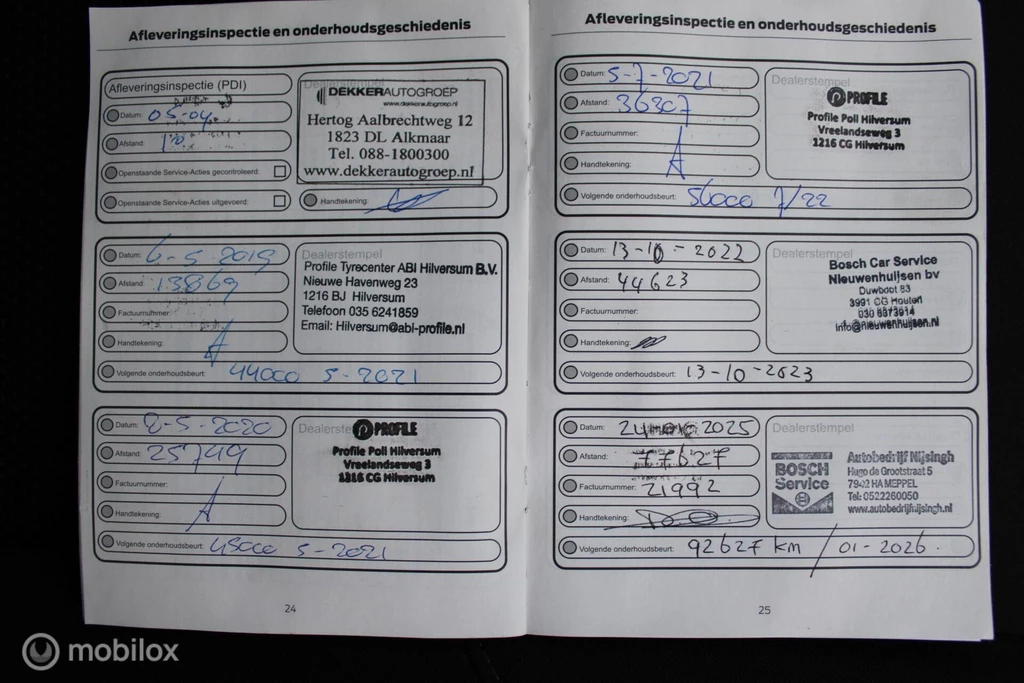 Afleveringsinspectie en onderhoudsgeschiedenis
Afleveringsinspectie (PDI)
Datum: 05-04
Afstand:
Openstaande Service-Acties gecontroleerd:
Openstaande Service-Acties uitgevoerd:
Dealerstempel
DEKKERAUTOGROEP
www.dekkerautogroep.nl
Hertog Aalbrechtweg 12
1823 DL Alkmaar
Tel. 088-1800300
www.dekkerautogroep.nl
Handtekening:
Datum: 6-5-2019
Afstand: 13869
Factuurnummer:
Handtekening:
Volgende onderhoudsbeurt: 44000 5-2021
Dealerstempel
Profile Tyrecenter ABI Hilversum B.V.
Nieuwe Havenweg 23
1216 BJ Hilversum
Telefoon 035 6241859
Email: Hilversum@abi-profile.nl
Datum: 2-5-2020
Afstand: 25749
Factuurnummer:
Handtekening:
Volgende onderhoudsbeurt: 45000 5-2021
Dealerste
PROFILE
Profile Poll Hilversum
Vreelandseweg 3
1216 CG Hilversum
24
Afleveringsinspectie en onderhoudsgeschiedenis
Datum: 5-7-2021
Afstand: 36307
Factuurnummer:
Handtekening:
Volgende onderhoudsbeurt: 56000 7/22
Dealerstempel
PROFILE
Profile Poll Hilversum
Vreelandseweg 3
1216 CG Hilversum
Datum: 13-10-2022
Afstand: 44623
Factuurnummer:
Handtekening:
Volgende onderhoudsbeurt: 13-10-2023
Dealerstempel
Bosch Car Service
Nieuwenhuijsen bv
Duwboot 83
3991 CG Houten
030 6373914
info@nieuwenhuijsen.nl
Datum: 24 2025
Afstand: 77627
Factuurnummer: 21992
Handtekening:
Volgende onderhoudsbeurt: 92627 km / 01-2026.
Dealerstempel
BOSCH
Service
Autobedrijf Nijsingh
Hugo de Grootstraat 5
7942 HA MEPPEL
Tel: 0522260050
www.autobedrijfnijsingh.nl
25
mobilox